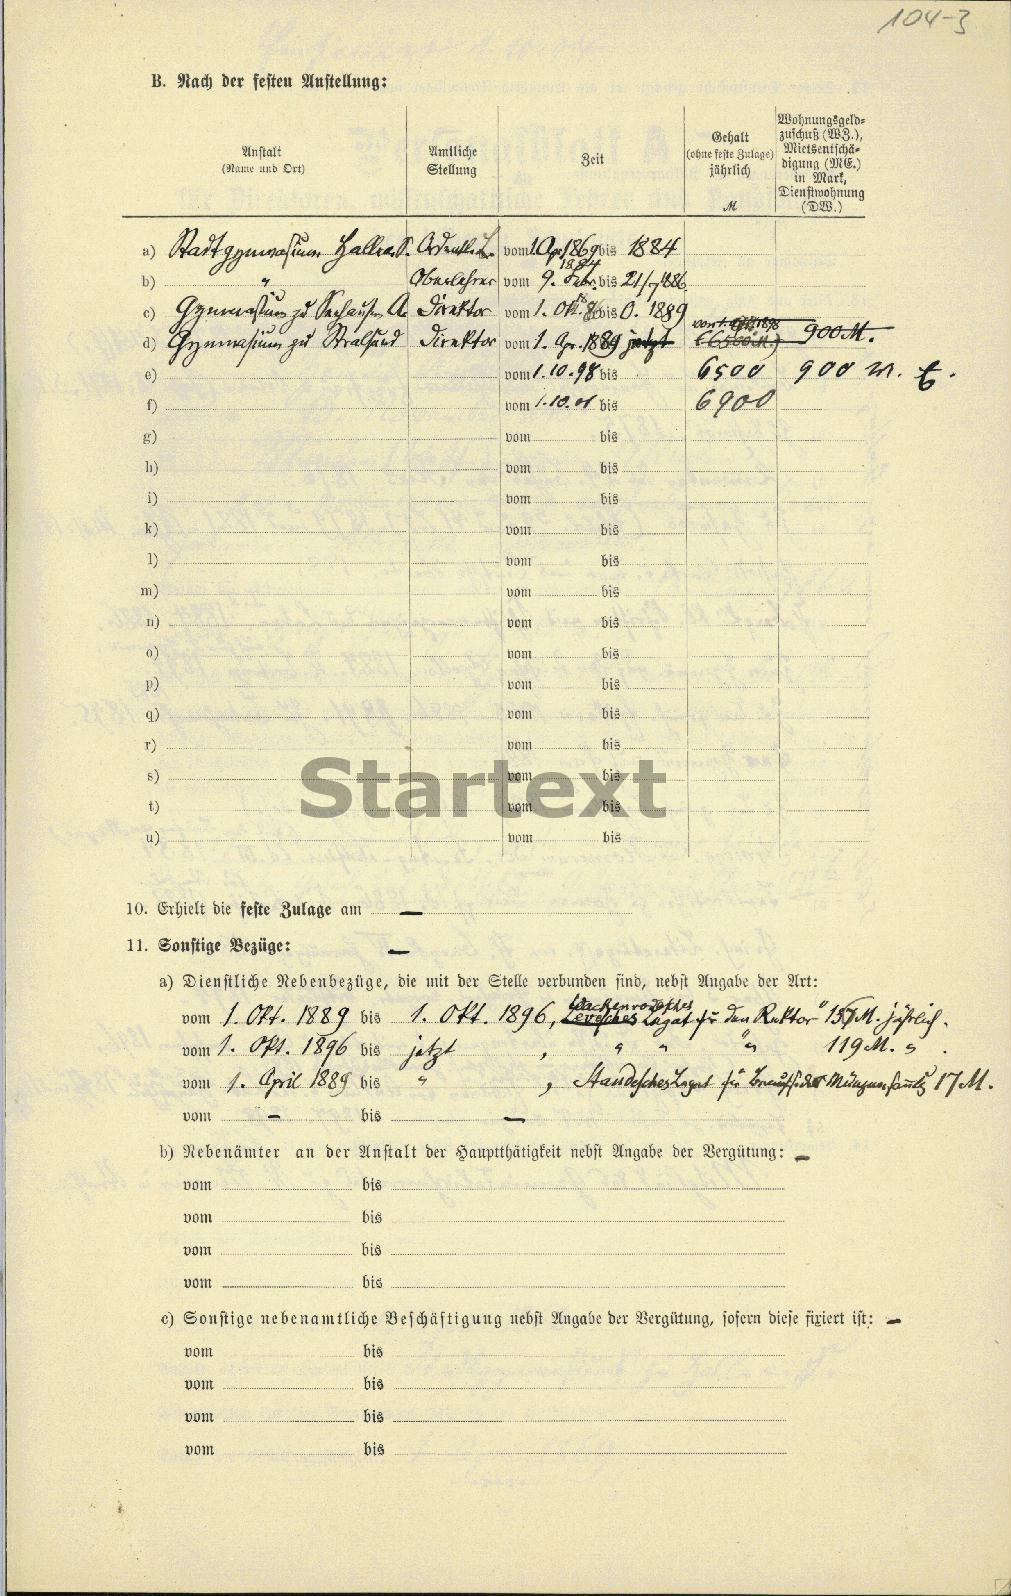 104-3
B. Nach der festen Anstellung:
Anstalt
(Name und Ort)
Amtliche
Stellung
Zeit
Gehalt
(ohne feste Zulage)
jährlich
M
Wohnungsgeld-
zuschuß (WZ.),
Mietsentschä-
digung (ME.)
in Mark,
Dienstwohnung
(DW.)
a) Stadtgymnasium Halle a. S. Ordentl. L. vom 1. Apr. 1869 bis 1884
b) " Oberlehrer vom 9. Febr. 1884 bis 1886
c) Gymnasium zu Seehausen A. Direktor vom 1. Okt. 86 bis O. 1889
d) Gymnasium zu Stralsund Direktor vom 1. Apr. 1889 jetzt vom 1. Okt. 1898 (6500 M.) 900 M.
e) vom 1.10.98 bis 6500 900 W.
f) vom 1.10.01 bis 6900
g) vom bis
h) vom bis
i) vom bis
k) vom bis
l) vom bis
m) vom bis
n) vom bis
o) vom bis
p) vom bis
q) vom bis
r) vom bis
s) vom bis
Startext
t) vom bis
u) vom bis
10. Erhielt die feste Zulage am —
11. Sonstige Bezüge: —
a) Dienstliche Nebenbezüge, die mit der Stelle verbunden sind, nebst Angabe der Art:
Wackenrodesches
vom 1. Okt. 1889 bis 1. Okt. 1896, Legat für den Rektor 157 M. jährlich.
vom 1. Okt. 1896 bis jetzt, " " " 119 M. " .
vom 1. April 1889 bis " , Legat für der Münzensamlg 17 M.
vom — bis —
b) Nebenämter an der Anstalt der Hauptthätigkeit nebst Angabe der Vergütung: —
vom bis
vom bis
vom bis
vom bis
c) Sonstige nebenamtliche Beschäftigung nebst Angabe der Vergütung, sofern diese fixiert ist: —
vom bis
vom bis
vom bis
vom bis